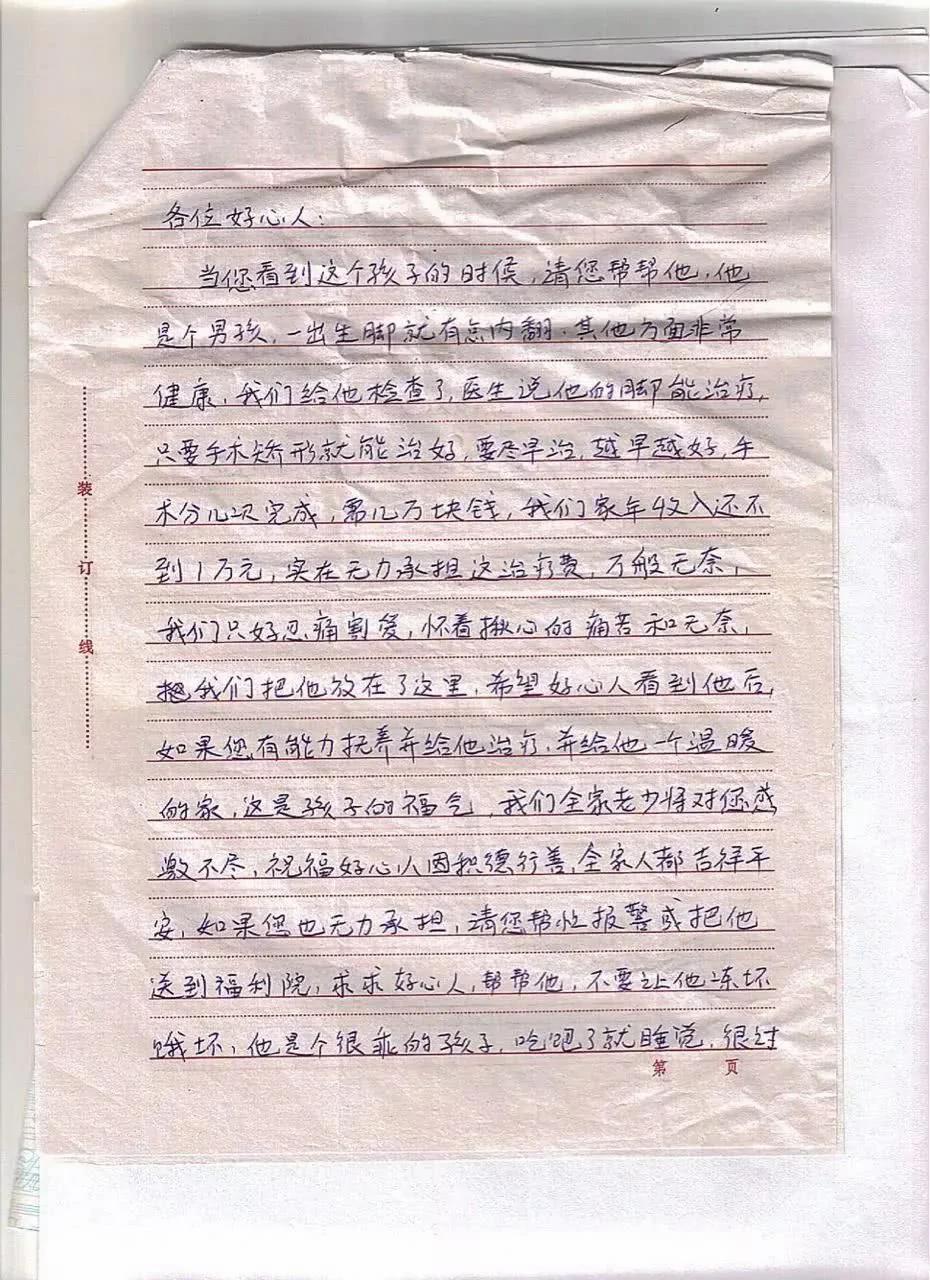 各位好心人：
当您看到这个孩子的时候，请您帮帮他，他
是个男孩，一出生脚就有点内翻，其他方面非常
健康，我们给他检查了，医生说他的脚能治疗，
只要手术矫形就能治好，要尽早治，越早越好，手
术分几次完成，需几万块钱，我们家年收入还不
到1万元，实在无力承担这治疗费，万般无奈，
我们只好忍痛割爱，怀着揪心的痛苦和无奈，
我们把他放在了这里，希望好心人看到他后，
如果您有能力抚养并给他治疗，并给他一个温暖
的家，这是孩子的福气，我们全家老少将对您感
激不尽，祝福好心人因积德行善，全家人都吉祥平
安，如果您也无力承担，请您帮忙报警或把他
送到福利院，求求好心人，帮帮他，不要让他冻坏
饿坏，他是个很乖的孩子，吃吧了就睡觉，很过
装
订
线
第 页